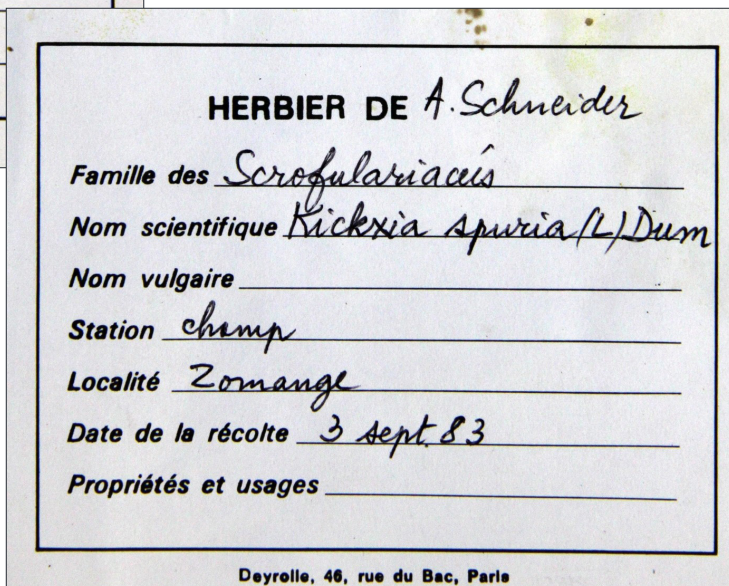 HERBIER DE A. Schneider
Famille des Scrofulariacées
Nom scientifique Kickxia spuria (L) Dum
Nom vulgaire
Station champ
Localité Zomange
Date de la récolte 3 sept. 83
Propriétés et usages
Deyrolle, 46, rue du Bac, Paris